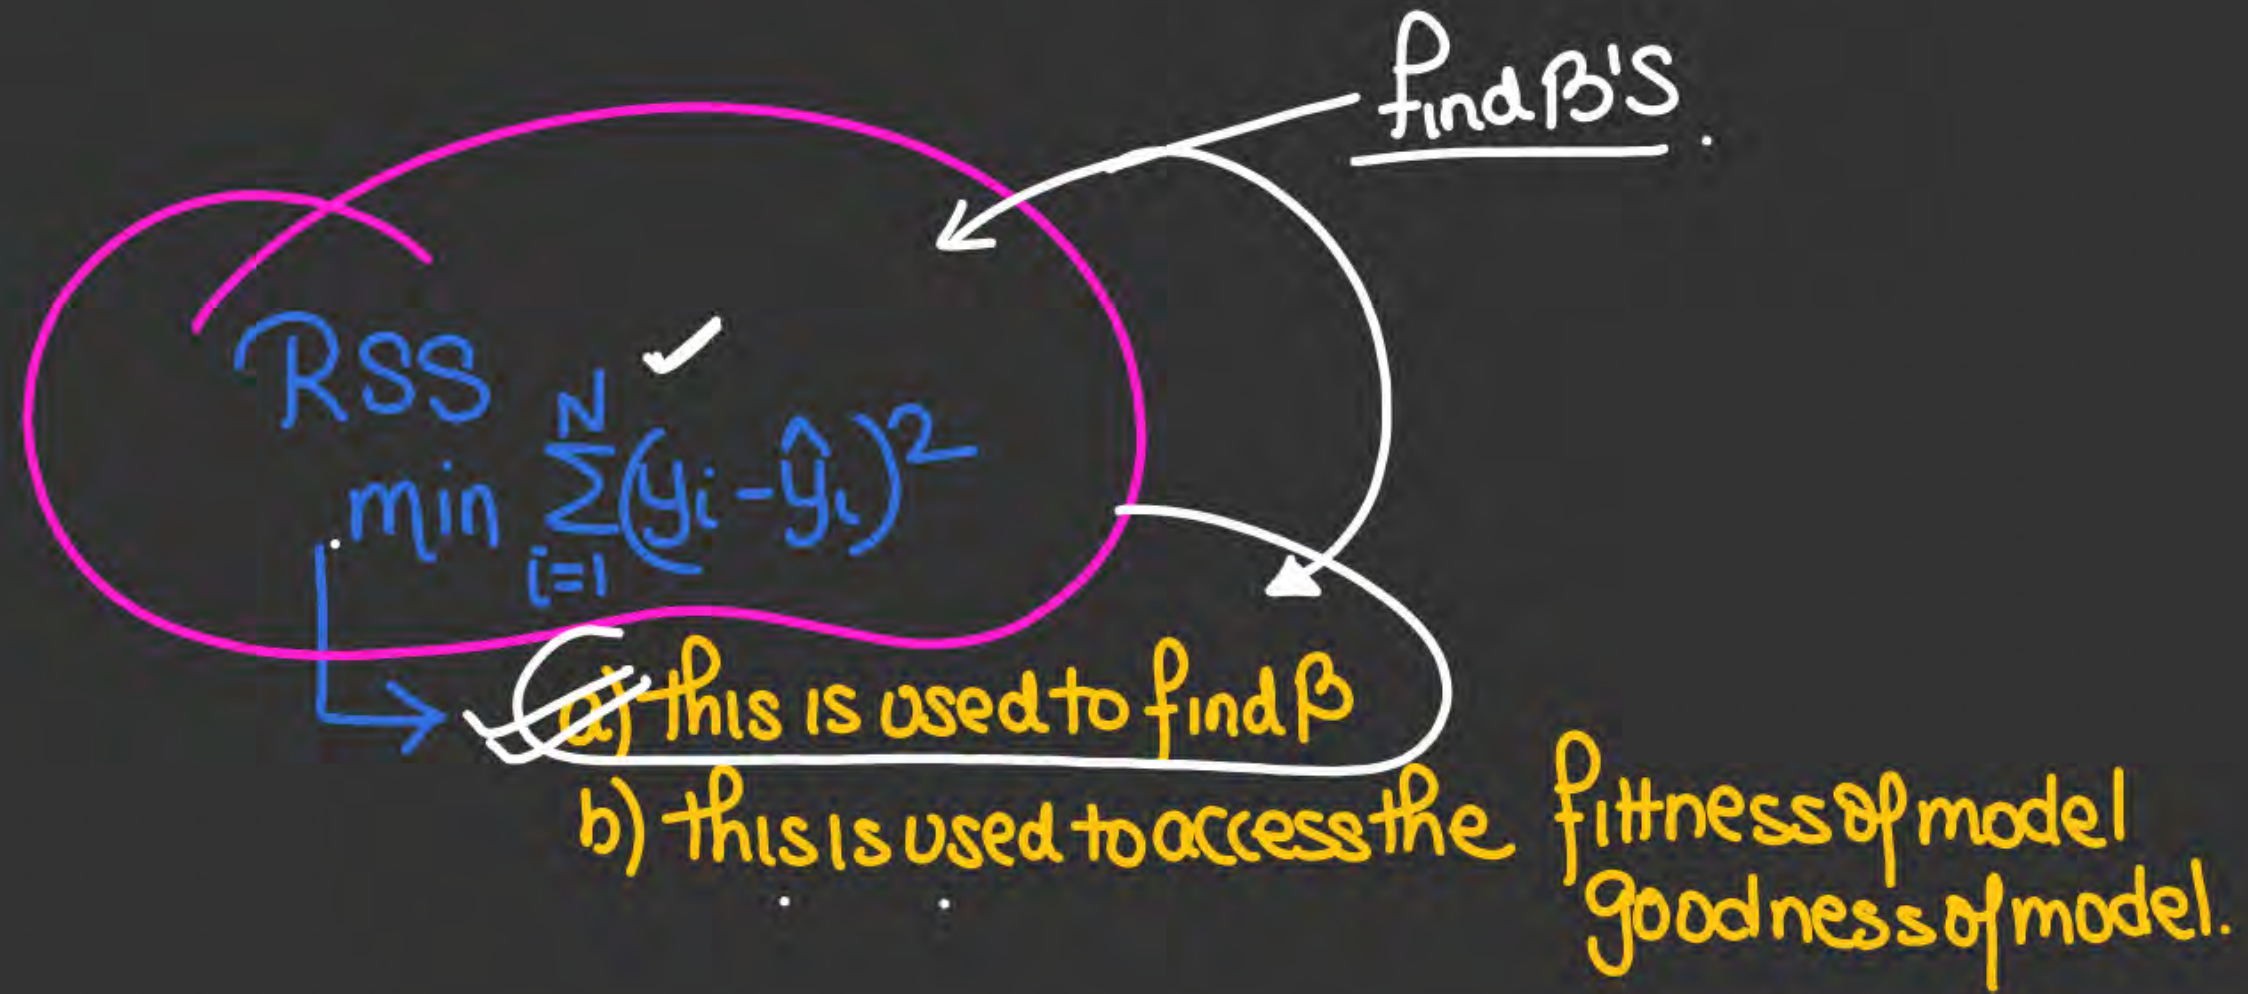 find β'S.
RSS
min N Σ i=1 (yi - ŷi)²
a) this is used to find β
b) this is used to access the fittness of model
goodness of model.